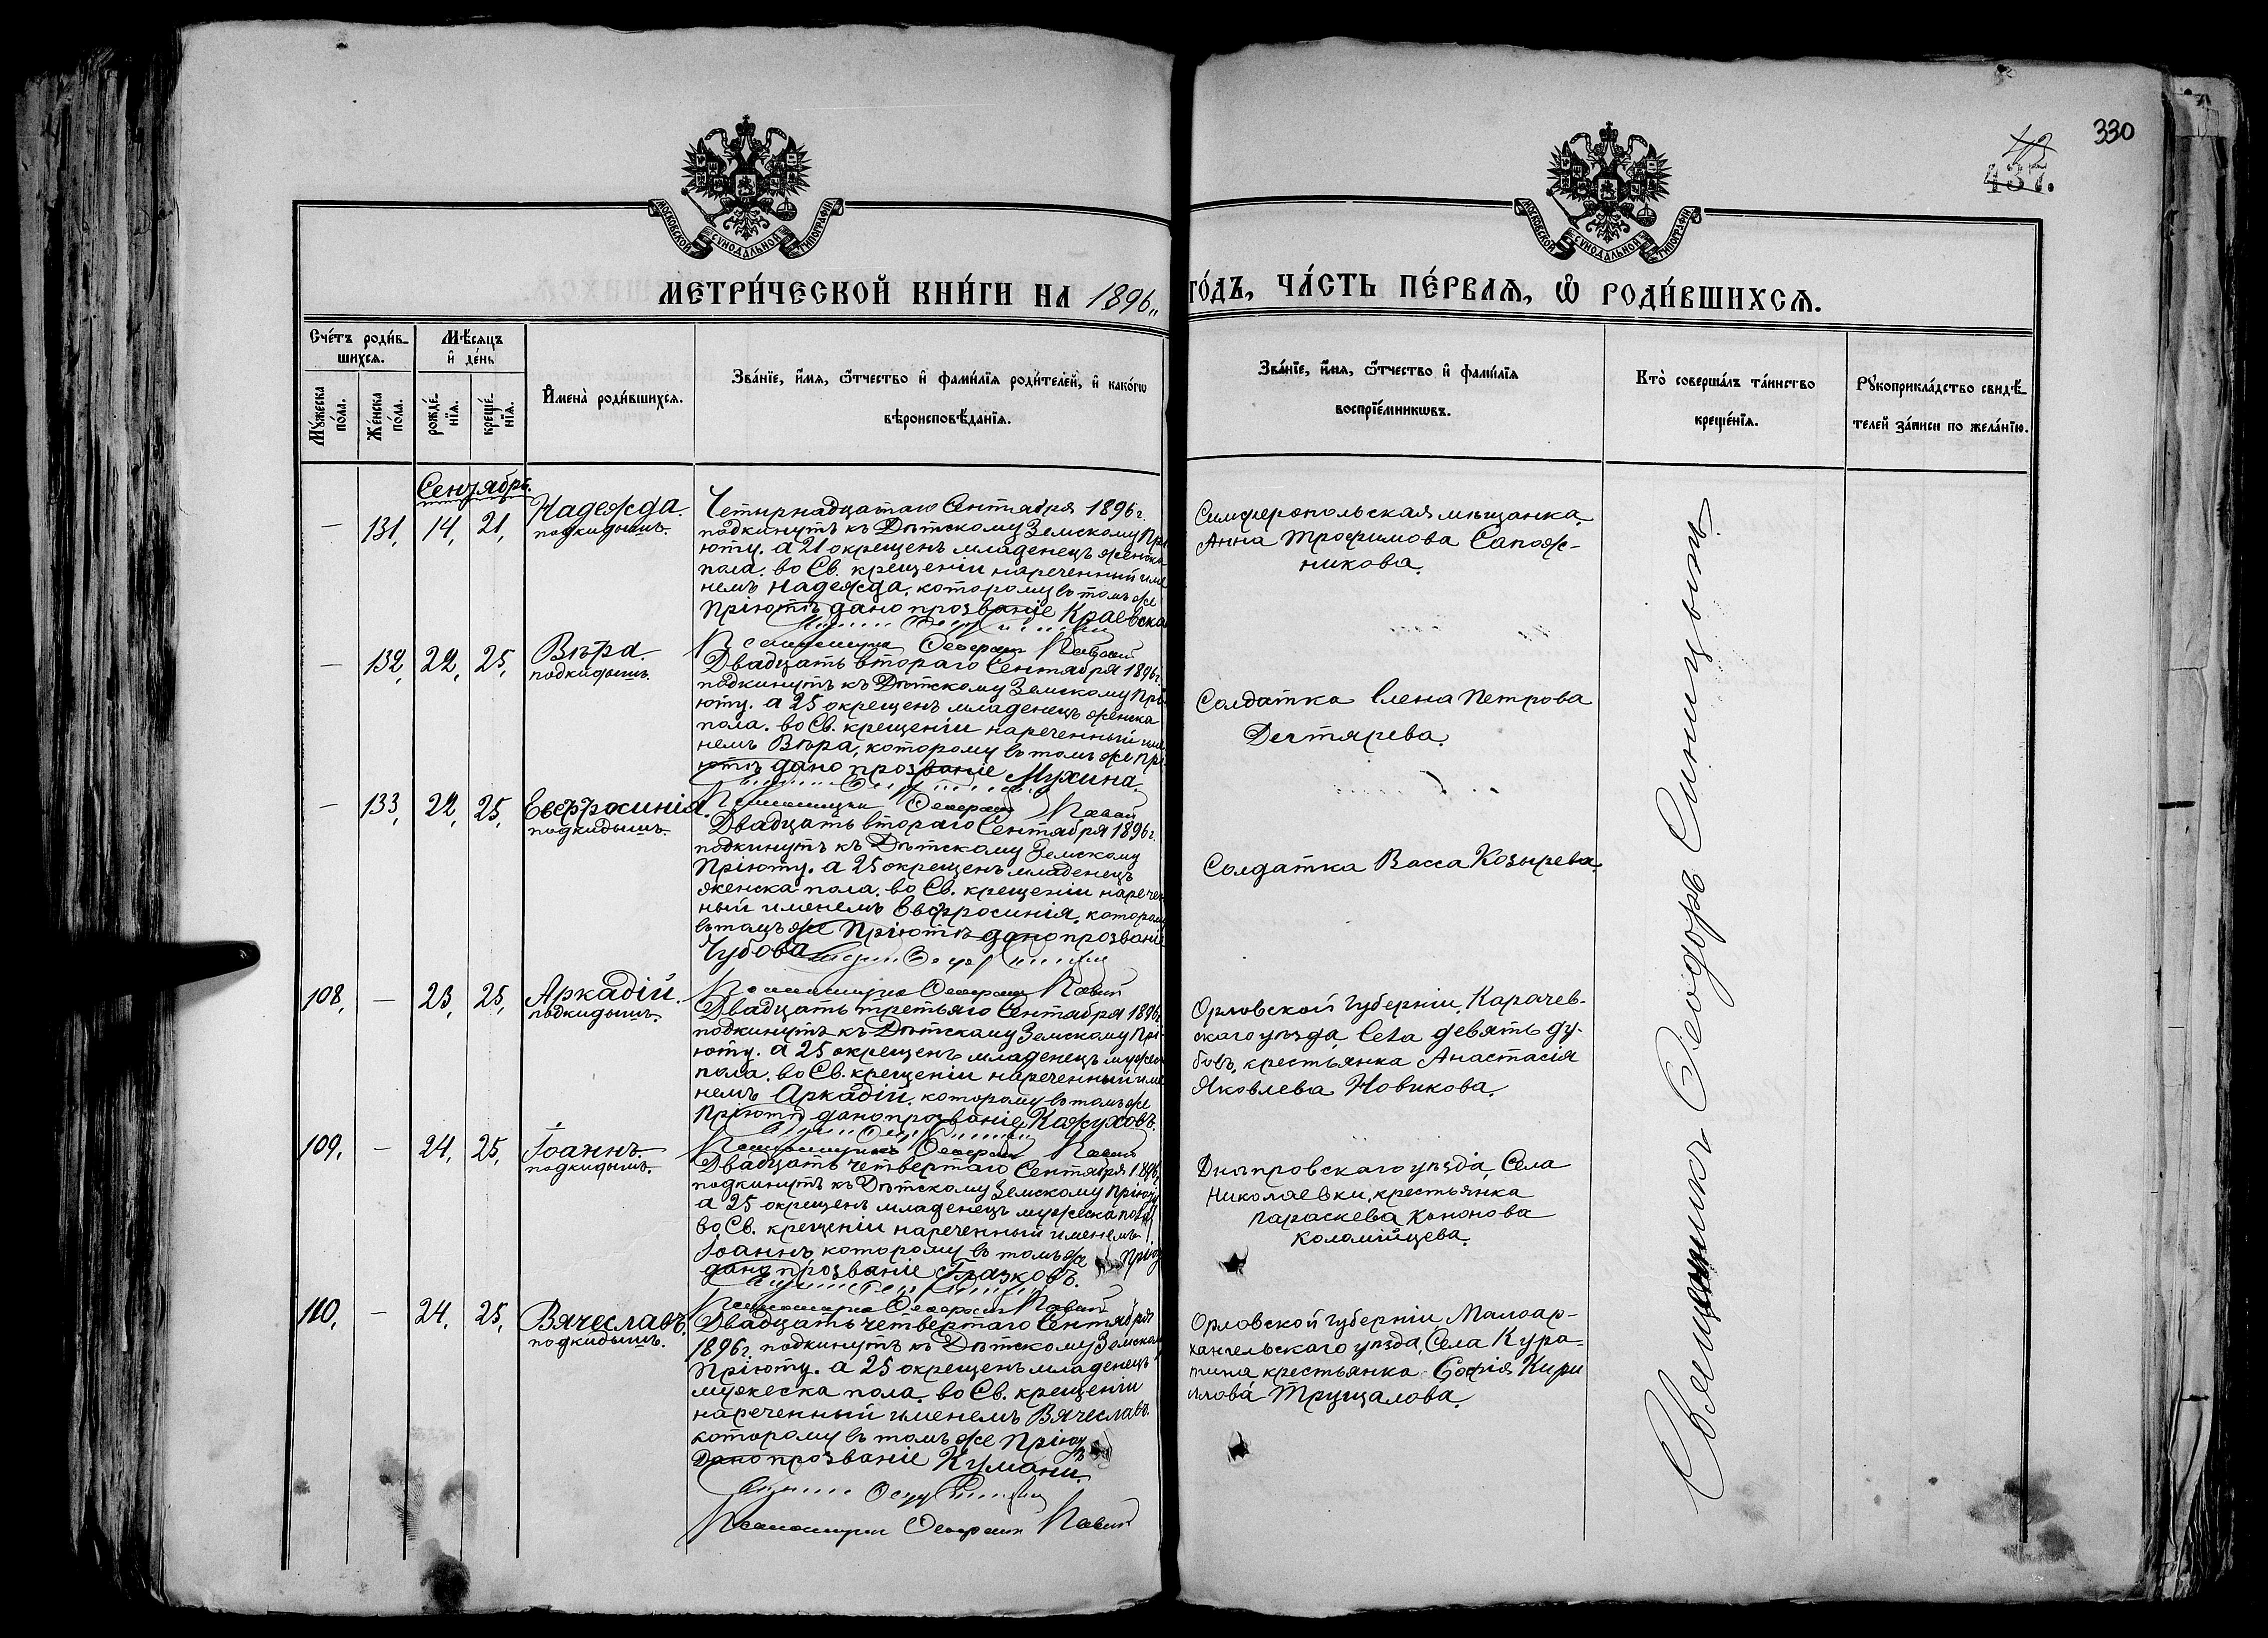 330
437.
МОСКОВСКОЙ СѴНОДАЛЬНОЙ ТИПОГРАФІИ
МОСКОВСКОЙ СѴНОДАЛЬНОЙ ТИПОГРАФІИ
МЕТРИ́ЧЕСКОЙ КНИ́ГИ НА 1896 ГО́ДЪ, ЧА́СТЬ ПЕ́РВАѦ, Ѽ РОДИ́ВШИХСѦ.
Сче́тъ роди́в-
шихсѧ.
Мѣ́сѧцъ
и҆ де́нь
Мꙋ́жеска
по́ла.
Же́нска
по́ла.
рожде́-
нїѧ.
креще́-
нїѧ.
И҆мена̀ роди́вшихсѧ.
Зва́нїе, и҆́мѧ, ѻ҆́тчество и҆ фами́лїѧ роди́телей, и҆ како́гѡ
вѣроисповѣ́данїѧ.
Зва́нїе, и҆́мѧ, ѻ҆́тчество и҆ фами́лїѧ
воспрїе́мникѡвъ.
Кто̀ соверша́лъ та́инство
креще́нїѧ.
Рꙋкоприкла́дство свидѣ́-
телей за́писи по жела́нїю.
Сентябрь.
— 131, 14, 21, Надежда.
подкидышъ.
Четырнадцатаго Сентября 1896 г.
подкинутъ къ Дѣтскому Земскому Прі
юту. а 21 окрещенъ младенецъ женска
пола. во Св. крещеніи нареченный име
немъ Надежда, которому въ томъ же
Пріютѣ дано прозваніе Краевска
Псаломщикъ
Симферопольская мѣщанка,
Анна Трофимова Сапож-
никова.
— 132, 22, 25, Вѣра.
подкидышъ.
Двадцать втораго Сентября 1896 г.
подкинутъ къ Дѣтскому Земскому Прі
юту. а 25 окрещенъ младенецъ женска
пола. во Св. крещеніи нареченный име
немъ Вѣра, которому въ томъ же Прі
ютѣ дано прозваніе Мухина.
Псаломщикъ
Солдатка Елена Петрова
Дегтярева.
— 133, 22, 25, Евфросинія.
подкидышъ.
Двадцать втораго Сентября 1896 г.
подкинутъ къ Дѣтскому Земскому
Пріюту. а 25 окрещенъ младенецъ
женска пола. во Св. крещеніи наречен
ный именемъ Евфросинія, котором
въ томъ же Пріютѣ дано прозваніе
Чубова
Псаломщикъ
Солдатка Васса Козырева.
108, — 23, 25, Аркадій.
подкидышъ.
Двадцать третьяго Сентября 1896 г.
подкинутъ къ Дѣтскому Земскому Прі-
юту. а 25 окрещенъ младенецъ мужес
пола. во Св. крещеніи нареченный име
немъ Аркадій, которому въ томъ же
Пріютѣ дано прозваніе Кожуховъ.
Псаломщикъ
Орловской губерніи, Карачев-
скаго уѣзда, Села девять ду-
бовъ, крестьянка Анастасія
Яковлева Новикова.
109, — 24, 25, Іоаннъ.
подкидышъ.
Двадцать четвертаго Сентября 1896
подкинутъ къ Дѣтскому Земскому Пріюту
а 25 окрещенъ младенецъ мужеска пола
во Св. крещеніи нареченный именемъ
Іоаннъ которому въ томъ же Прію
дано прозваніе Глазковъ.
Псаломщикъ
Днѣпровскаго уѣзда, Села
Николаевки, крестьянка
Параскева Кононова
Коломійцева.
110, — 24, 25, Вячеславъ.
подкидышъ.
Двадцать четвертаго Сентября
1896 г. подкинутъ къ Дѣтскому Земском
Пріюту. а 25 окрещенъ младенецъ
мужеска пола, во Св. крещеніи
нареченный именемъ Вячеславъ.
которому въ томъ же Пріютѣ
дано прозваніе Кумани.
Псаломщикъ
Орловской губерніи, Малоар-
хангельскаго уѣзда, Села Кура-
тина крестьянка София Кири
лова Трущалова.
Священникъ Ѳеодоръ Синицынъ